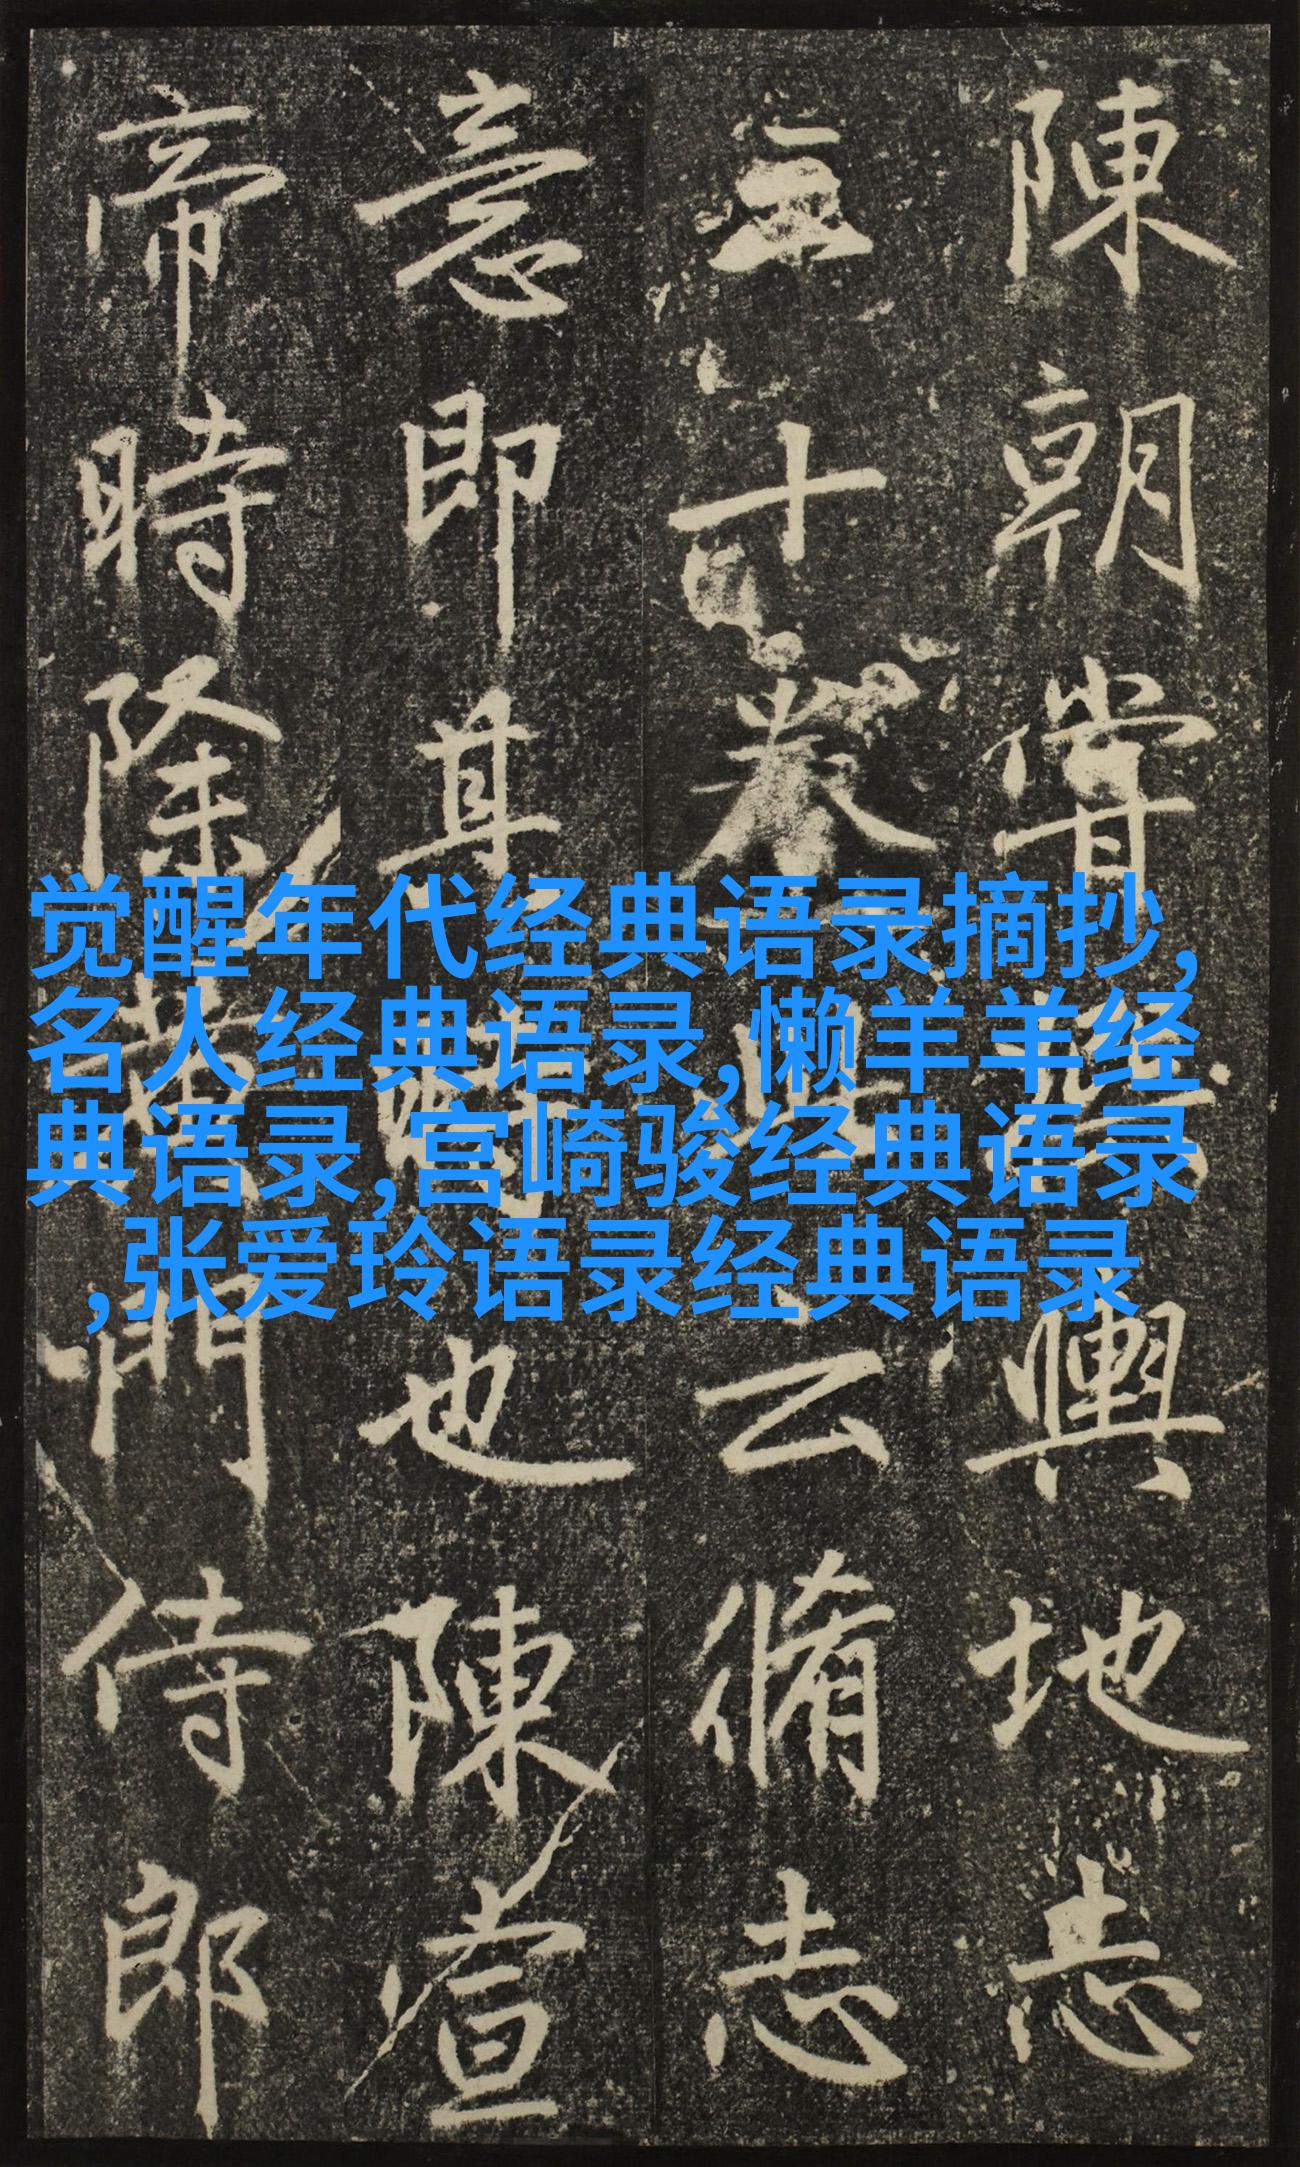 觉醒年代经典语录摘抄,
名人经典语录,懒羊羊经
典语录,宫崎骏经典语录
,张爱玲语录经典语录
陳朝嘗輿地志
十卷云脩志
意即其時也陳宣
帝時除黃門侍郎